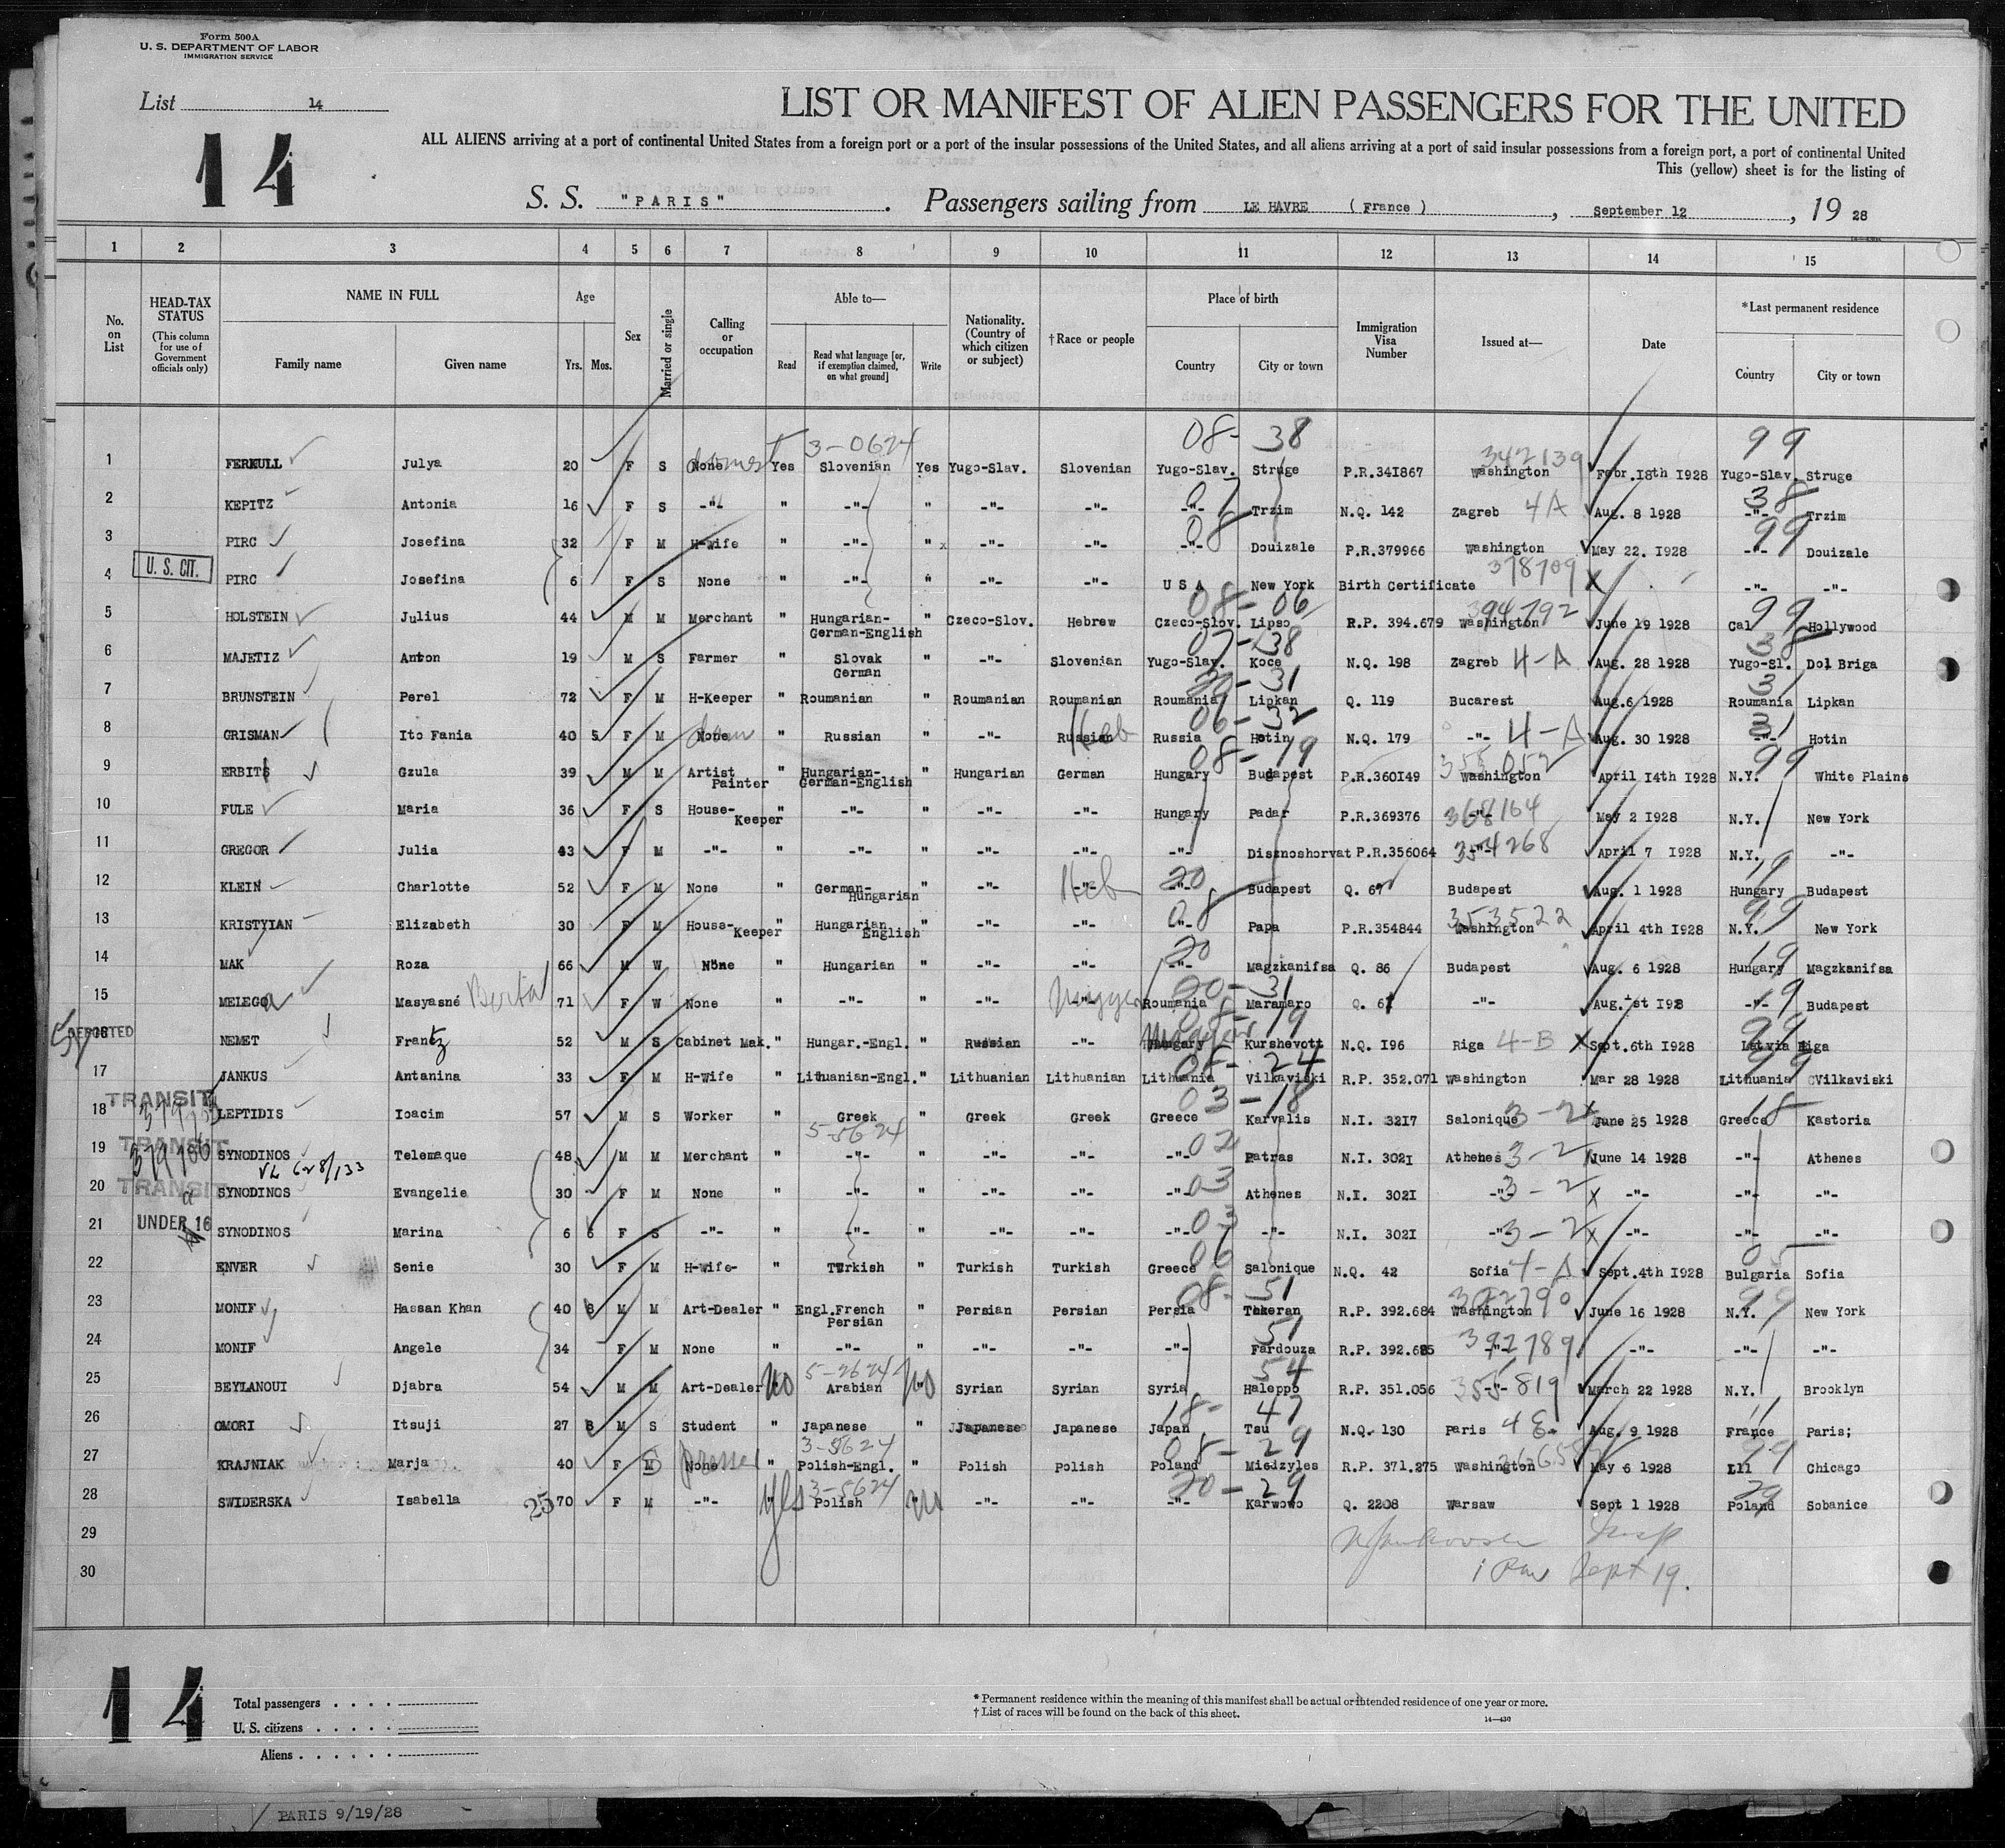 Form 500A
U. S. DEPARTMENT OF LABOR
IMMIGRATION SERVICE
List 14
14
LIST OR MANIFEST OF ALIEN PASSENGERS FOR THE UNITED
ALL ALIENS arriving at a port of continental United States from a foreign port or a port of the insular possessions of the United States, and all aliens arriving at a port of said insular possessions from a foreign port, a port of continental United
This (yellow) sheet is for the listing of
S. S. "PARIS". Passengers sailing from LE HAVRE (France), September 12, 19 28
1 2 3 4 5 6 7 8 9 10 11 12 13 14 15
No. on List
HEAD-TAX STATUS
(This column for use of Government officials only)
NAME IN FULL
Family name Given name
Age
Yrs. Mos.
Sex
Married or single
Calling or occupation
Able to—
Read
Read what language [or, if exemption claimed, on what ground]
Write
Nationality. (Country of which citizen or subject)
†Race or people
Place of birth
Country City or town
Immigration Visa Number
Issued at—
Date
*Last permanent residence
Country City or town
3-0624 08- 38 342139 99
1 FERKULL Julya 20 F S None Yes Slovenian Yes Yugo-Slav. Slovenian Yugo-Slav. Struge P.R.341867 Washington Febr.18th 1928 Yugo-Slav. Struge
2 KEPITZ Antonia 16 F S -"- " -"- " -"- -"- -"- Trzim N.Q. 142 Zagreb 4A Aug. 8 1928 -"- Trzim
3 PIRC Josefina 32 F M H-Wife " -"- " x -"- -"- -"- Douizale P.R.379966 Washington May 22. 1928 -"- Douizale
4 U. S. CIT. PIRC Josefina 6 F S None " -"- " -"- -"- U S A New York Birth Certificate 378709 X -"- -"-
08-06 394792 99
5 HOLSTEIN Julius 44 M M Merchant " Hungarian-German-English " Czeco-Slov. Hebrew Czeco-Slov. Lipso R.P. 394.679 Washington June 19 1928 Cal Hollywood
07-38 38
6 MAJETIZ Anton 19 M S Farmer " Slovak German " -"- Slovenian Yugo-Slav. Koce N.Q. 198 Zagreb 4-A Aug. 28 1928 Yugo-Sl. Dol Briga
20-31
7 BRUNSTEIN Perel 72 F M H-Keeper " Roumanian " Roumanian Roumanian Roumania Lipkan Q. 119 Bucarest Aug.6 1928 Roumania Lipkan
06-32
8 GRISMAN Ito Fania 40 5 F M None " Russian " -"- Russian Heb Russia Hotin N.Q. 179 -"- 4-A Aug. 30 1928 -"- Hotin
08-19 99
9 ERBITS Gzula 39 M M Artist Painter " Hungarian-German-English " Hungarian German Hungary Budapest P.R.360149 Washington April 14th 1928 N.Y. White Plains
10 FULE Maria 36 F S House-Keeper " -"- " -"- -"- Hungary Padar P.R.369376 -"- 368164 May 2 1928 N.Y. New York
11 GREGOR Julia 43 F M -"- " -"- " -"- -"- -"- Disznoshorvat P.R.356064 354268 April 7 1928 N.Y. -"-
12 KLEIN Charlotte 52 F M None " German-Hungarian " -"- -"- Heb -"- 20 Budapest Q. 67 Budapest Aug. 1 1928 Hungary Budapest
13 KRISTYIAN Elizabeth 30 F M House-Keeper " Hungarian English " -"- -"- -"- 08 Papa P.R.354844 Washington 353522 April 4th 1928 N.Y. New York
14 MAK Roza 66 M W None " Hungarian " -"- -"- -"- 20 Magzkanifsa Q. 86 Budapest Aug. 6 1928 Hungary Magzkanifsa
20-31
15 MELEGA Masyasné Berta 71 F W None " -"- " -"- -"- Roumania Maramaro Q. 61 -"- Aug.1st 1928 -"- Budapest
DEPORTED
16 NEMET Frantz 52 M S Cabinet Mak. " Hungar.-Engl. " Russian Hungary Kurshevott N.Q. 196 Riga 4-B X Sept.6th 1928 Latvia Riga
08-24 99
17 JANKUS Antanina 33 F M H-Wife " Lithuanian-Engl. " Lithuanian Lithuanian Lithuania Vilkaviski R.P. 352.071 Washington Mar 28 1928 Lithuania CVilkaviski
TRANSIT 03-18 18
18 LEPTIDIS Ioacim 57 M S Worker " Greek " Greek Greek Greece Karvalis N.I. 3217 Salonique 3-2 June 25 1928 Greece Kastoria
TRANSIT 5-5624
19 SYNODINOS Telemaque 48 M M Merchant " -"- " -"- -"- -"- 02 Patras N.I. 3021 Athenes 3-2 June 14 1928 -"- Athenes
TRANSIT VL 628/133
20 SYNODINOS Evangelie 30 F M None " -"- " -"- -"- -"- 03 Athenes N.I. 3021 -"- 3-2 X -"- -"- -"-
UNDER 16
21 SYNODINOS Marina 6 6 F S -"- " -"- " -"- -"- -"- 03 -"- N.I. 3021 -"- 3-2 X -"- -"- -"-
22 ENVER Senie 30 F M H-Wife- " Turkish " Turkish Turkish Greece 06 Salonique N.Q. 42 Sofia 4-A Sept.4th 1928 Bulgaria 05 Sofia
08-51 99
23 MONIF Hassan Khan 40 8 M M Art-Dealer " Engl.French Persian " Persian Persian Persia Teheran R.P. 392.684 Washington 392790 June 16 1928 N.Y. New York
51
24 MONIF Angele 34 F M None " -"- " -"- -"- -"- Fardouza R.P. 392.685 -"- 392789 -"- -"- -"-
5-2624 54
25 BEYLANOUI Djabra 54 M M Art-Dealer No Arabian No Syrian Syrian Syria Haleppo R.P. 351.056 -"- 355819 March 22 1928 N.Y. Brooklyn
18-47 11
26 OMORI Itsuji 27 8 M S Student " Japanese " Japanese Japanese Japan Tsu N.Q. 130 Paris 4E. Aug. 9 1928 France Paris;
3-5624 08-29 99
27 KRAJNIAK Marja 40 F M None " Polish-Engl. " Polish Polish Poland Miedzyles R.P. 371.275 Washington May 6 1928 Ill Chicago
3-5624 20-29 29
28 SWIDERSKA Isabella 25 70 F M -"- Yes Polish No -"- -"- -"- Karwowo Q. 2208 Warsaw Sept 1 1928 Poland Sobanice
29
30 Sept 19.
14
Total passengers . . . .
U. S. citizens . . . . .
Aliens . . . . . .
* Permanent residence within the meaning of this manifest shall be actual or intended residence of one year or more.
† List of races will be found on the back of this sheet.
14—430
PARIS 9/19/28